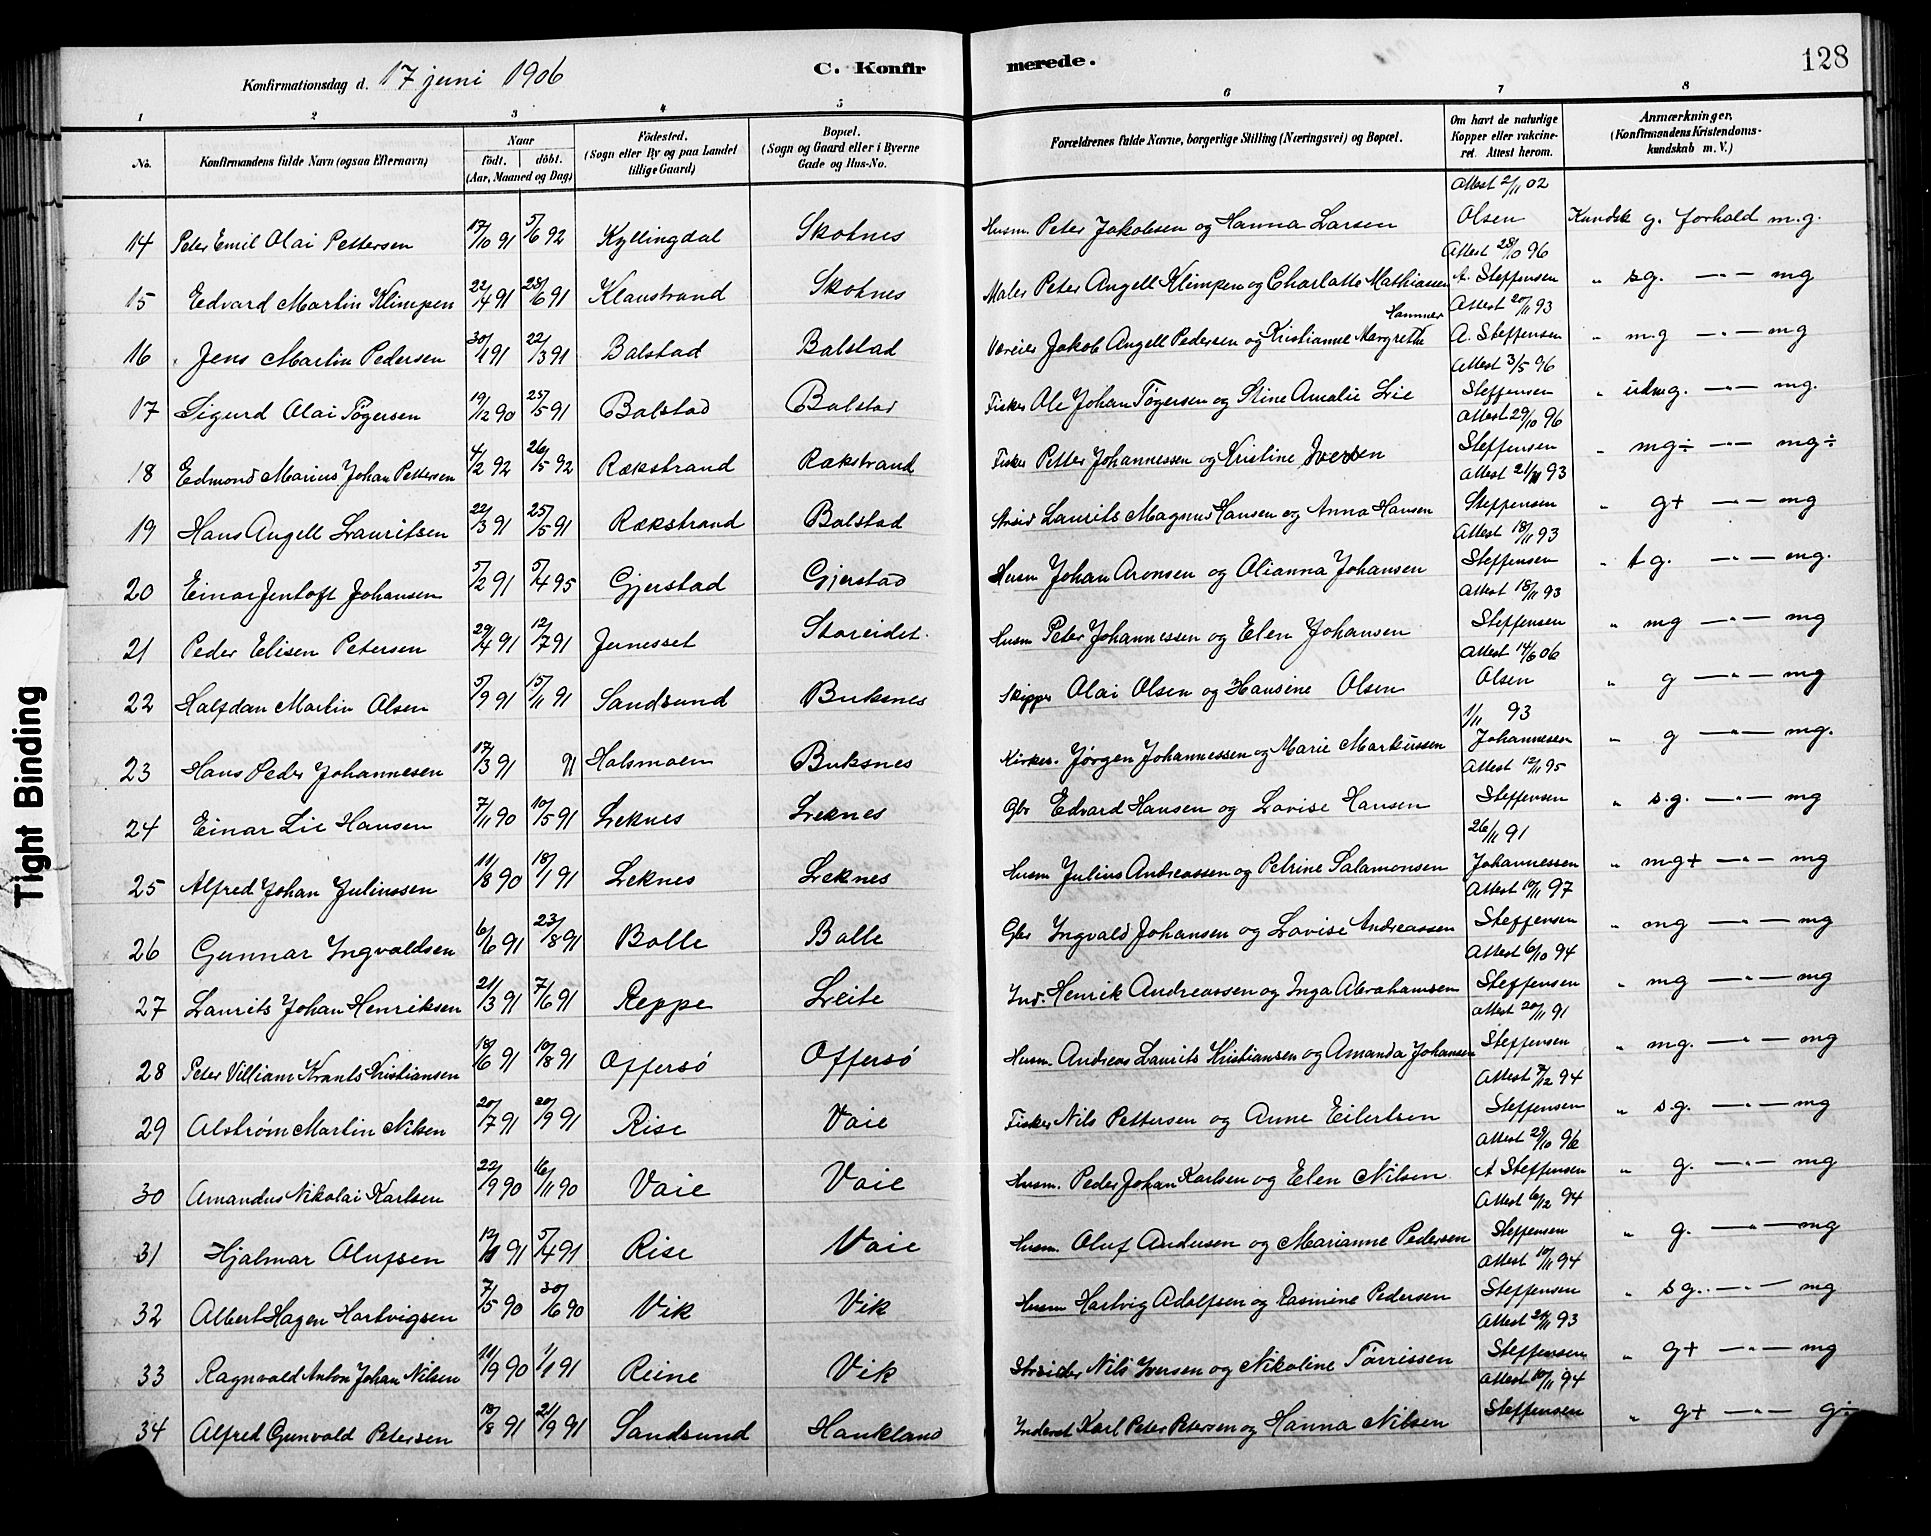 Konfirmationsdag d. 17 juni 1906 C. Konfirmerede. 128
1 2 3 4 5 6 7 8
No. Konfirmandens fulde Navn (ogsaa Efternavn) Naar födt. döbt. (Aar, Maaned og Dag) Födested. (Sogn eller By og paa Landet tillige Gaard) Bopæl. (Sogn og Gaard eller i Byerne Gade og Hus-No. Forældrenes fulde Navne, borgerlige Stilling (Næringsvei) og Bopæl. Om havt de naturlige Kopper eller vakcineret. Attest herom. Anmærkninger. (Konfirmandens Kristendomskundskab m. V.)
14 Peter Emil Olai Pettersen 17/10 91 5/6 92 Kyllingdal Skotnes Husm. Peter Jakobsen og Hanna Larsen Attest 2/11 02 Olsen Kundsk g. forhold m.g.
15 Edvard Martin Klimpen 22/4 91 28/6 91 Klaustrand Skotnes Maler Peter Angell Klimpen og Charlotte Mathiassen Attest 28/10 96 A. Steffensen " sg. —"— mg
16 Jens Martin Pedersen 30/1 91 22/3 91 Balstad Balstad Væreier Jakob Angell Pedersen og Kristianne Margrethe Hammer Attest 20/11 93 A. Steffensen " m.g —"— mg
17 Sigurd Olai Tøgersen 19/12 90 25/5 91 Balstad Balstad Fisker Ole Johan Tøgersen og Stine Amalie Lie Attest 3/5 96 Steffensen " udm g. —"— mg.
18 Edmond Marius Johan Pettersen 4/2 92 26/5 92 Rækstrand Rækstrand Fisker Petter Johannessen og Kristine Iversen Attest 29/10 96 Steffensen " mg÷ —"— mg÷
19 Hans Angell Lauritsen 22/3 91 25/5 91 Rækstrand Balstad Strsid Laurits Magnus Hansen og Anna Hansen Attest 21/11 93 Steffensen " g+ —"— mg
20 Einar Jentoft Johansen 5/2 91 5/4 95 Gjerstad Gjerstad Husm Johan Aronsen og Olianna Johansen Attest 18/11 93 Steffensen " t g. —"— mg.
21 Peder Elisen Petersen 29/4 91 12/7 91 Jernesset Storeidet. Husm Peter Johannessen og Elen Johansen Attest 18/11 93 Steffensen " mg —"— mg
22 Halfdan Martin Olsen 5/9 91 15/11 91 Sandsund Buksnes Skipper Olai Olsen og Hansine Olsen Attest 14/6 06 Olsen " g —"— mg
23 Hans Peder Johannesen 17/3 91 91 Holsmoen Buksnes Kirkes. Jørgen Johannessen og Marie Markussen 1/11 93 Johannesen " g —"— mg.
24 Einar Lie Hansen 7/11 90 10/5 91 Leknes Leknes Gbr Edvard Hansen og Lovise Hansen Attest 12/11 95 Steffensen " s.g. —"— mg
25 Alfred Johan Juliussen 11/8 90 18/1 91 Leknes Leknes Husm Julius Andreassen og Petrine Salamonsen 26/11 91 Johannessen " mg+ —"— mg
26 Gunnar Ingvaldsen 6/6 91 23/8 91 Bolle Balle Gbr Ingvald Johansen og Lovise Andreassen Attest 10/11 97 Steffensen " mg —"— mg
27 Laurits Johan Henriksen 21/3 91 7/6 91 Reppe Leite Ind. Henrik Andreassen og Inga Abrahamsen Attest 6/10 94 Steffensen " mg —"— mg
28 Peter Villiam Krants Kristiansen 18/6 91 10/8 91 Offersø Offersø Husm. Andreas Laurits Kristiansen og Amanda Johansen Attest 20/11 91 Steffensen " mg. —"— mg
29 Alstrøm Martin Nilsen 20/7 91 20/9 91 Rise Vaie Fisker Nils Pettersen og Anne Eilertsen Attest 7/12 94 Steffensen " s.g. —"— mg
30 Amandus Nikolai Karlsen 22/9 90 16/11 90 Vaie Vaie Husm. Peder Johan Karlsen og Elen Nilsen Attest 29/10 96 A Steffensen " g. —"— mg
31 Hjalmar Olufsen 91 5/4 91 Rise Vaie Husm. Oluf Andersen og Marianne Pedersen Attest 6/12 94 Steffensen " g. —"— mg
32 Albert Hagen Hartvigsen 7/5 90 30/6 90 Vik Vik Husm Hartvig Adolfsen og Rasmine Pedersen Attest 10/11 94 Steffensen " s g. —"— mg
33 Ragnvald Anton Johan Nilsen 11/9 90 1/1 91 Reine Vik Strsider Nils Iversen og Nikoline Tørrissen Attest 20/11 93 Steffensen " g+ —"— mg
34 Alfred Gunvald Petersen 18/8 91 21/9 91 Sandsund Haukland Inderst Karl Peter Petersen og Hanna Nilsen Attest 10/11 94 Steffensen " g+ —"— g÷
Tight Binding